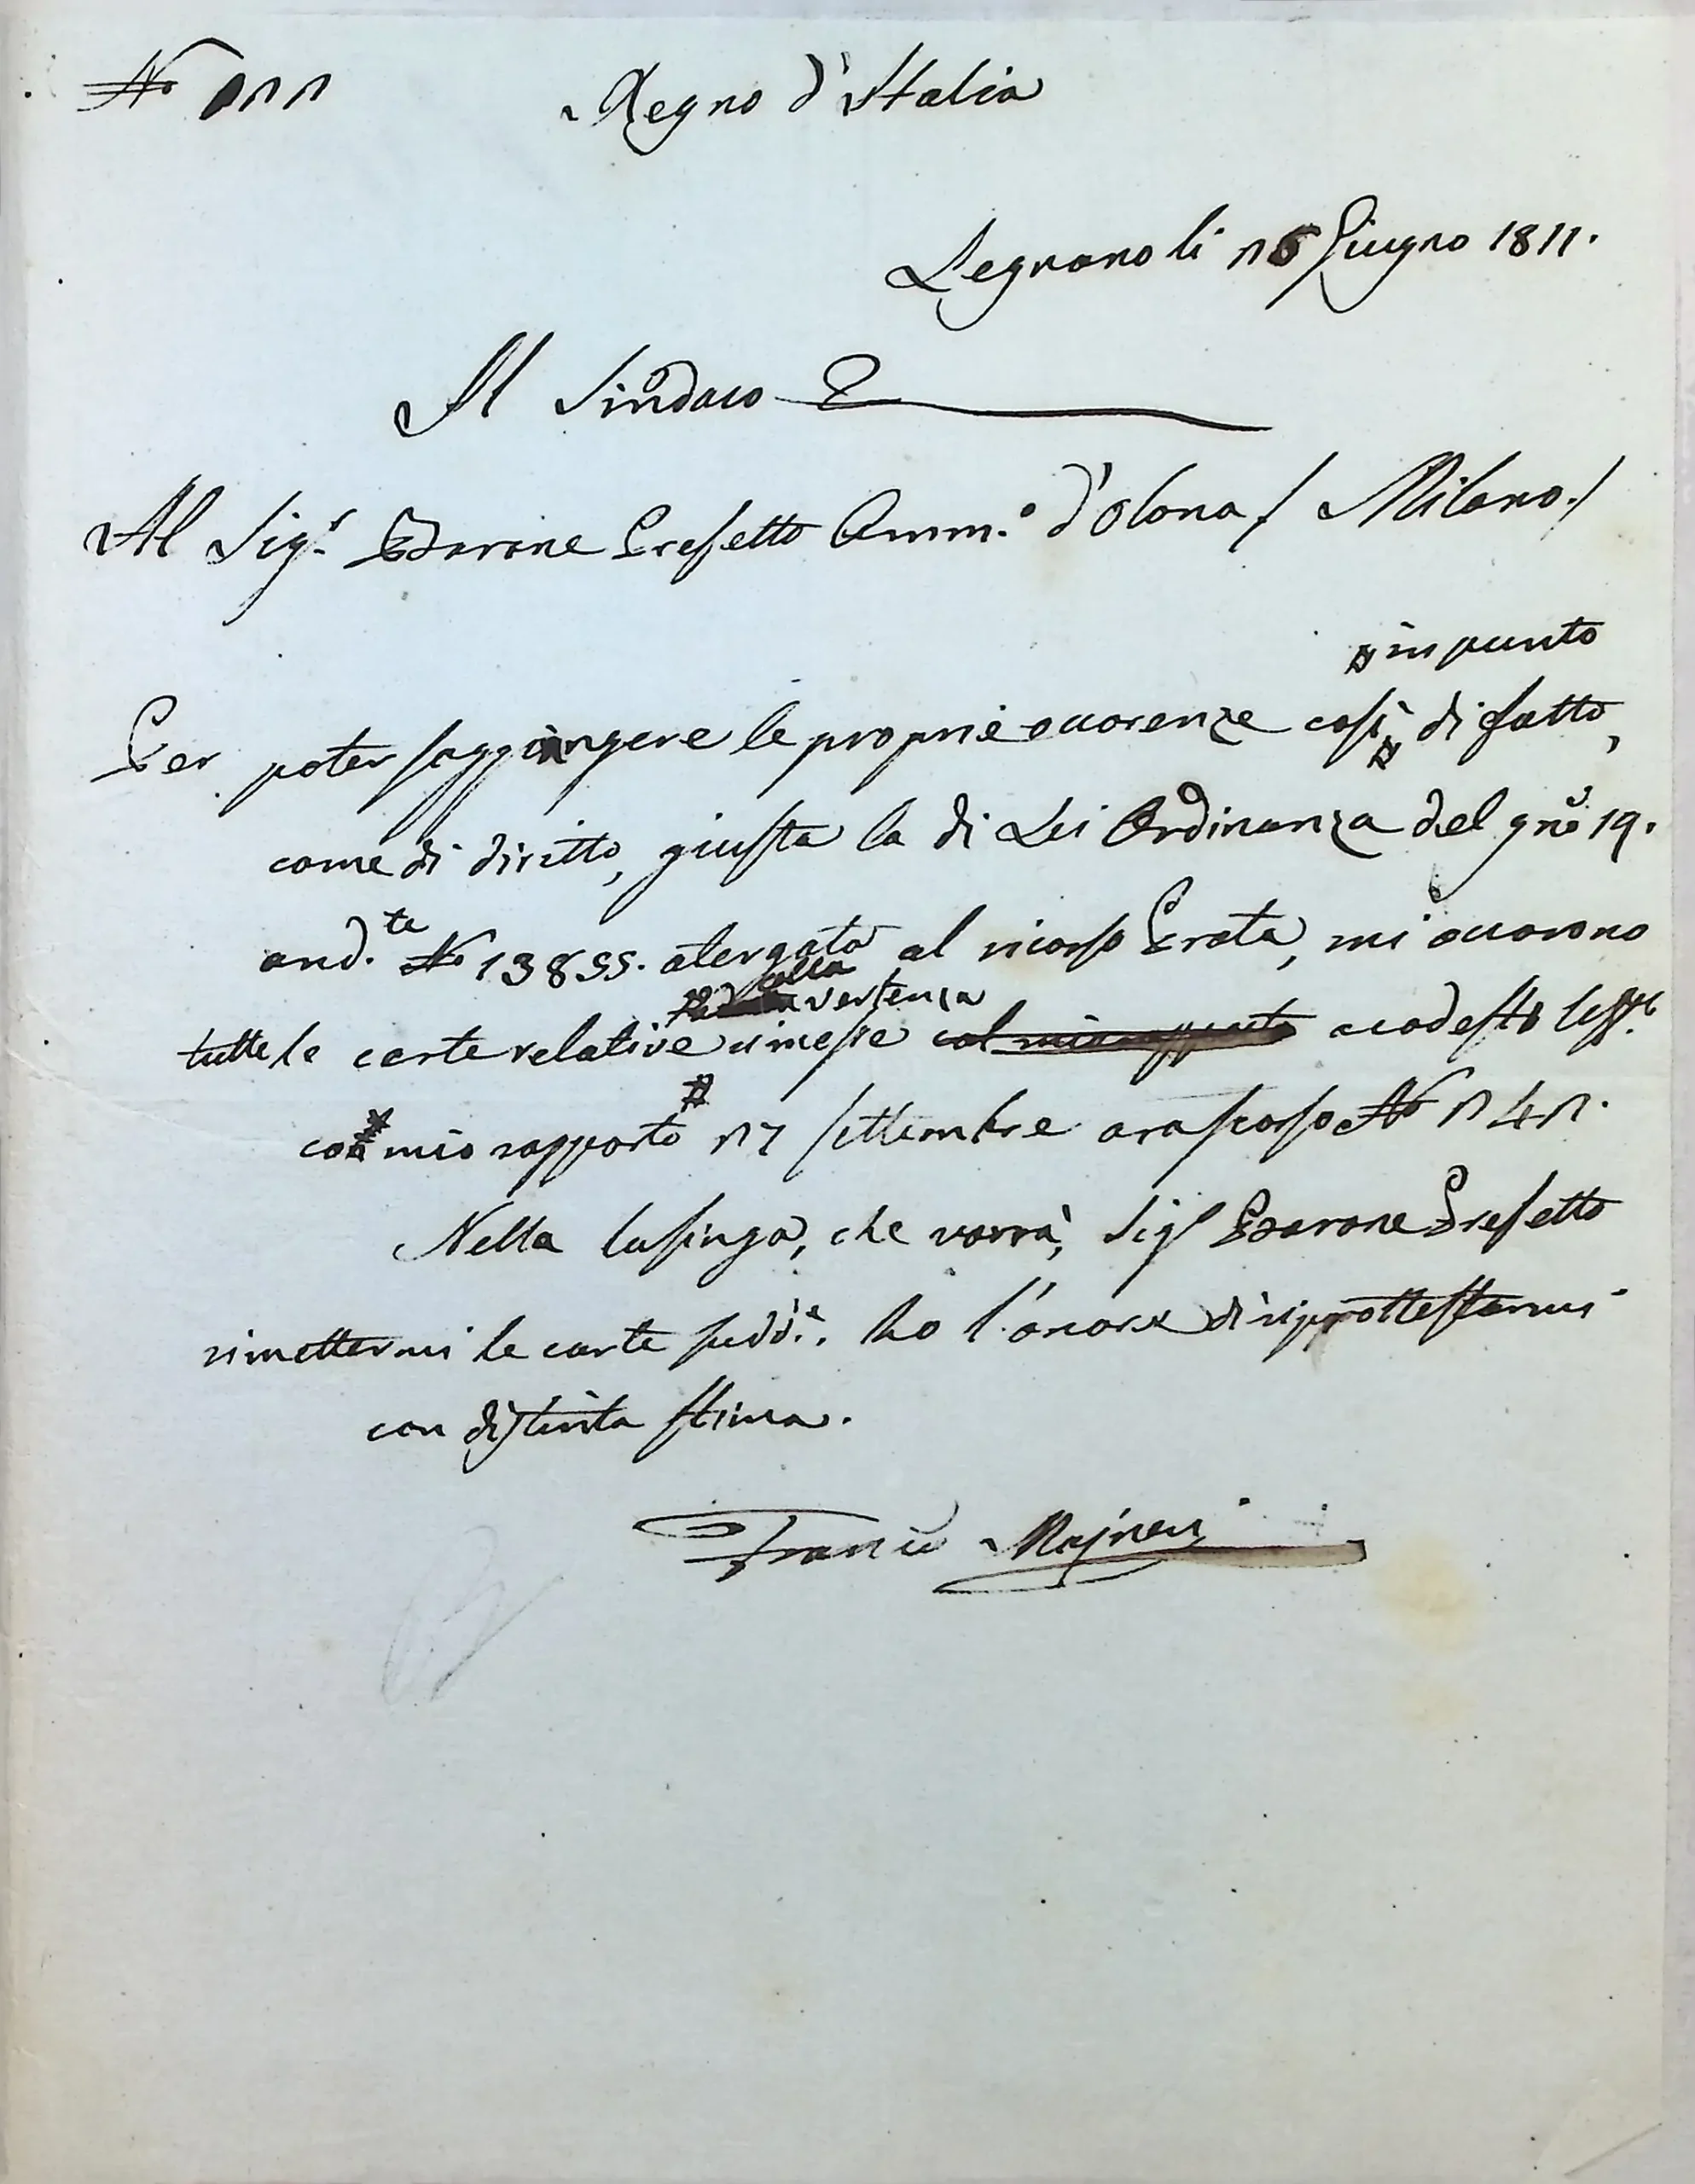 Regno d'Italia
Legnano li 26 Giugno 1811.
Il Sindaco
Al Sig.r Barone Prefetto Amm.o d'Olona / Milano./
# in punto
Per poter soggiungere le proprie occorenze così # di fatto,
come di diritto, giusta la di Lei Ordinanza del gno 19.
and.te No 13855. atergata al ricorso Prata, mi occorono
alla vertenza
tutte le carte relative # rimesse col mio rapporto a codesto
col mio rapporto 27 Settembre ora scorso No 242.
Nella lusinga, che vorrà, Sigr Barone Prefetto
rimettermi le carte sudd.e. ho l'onore di riprottestarmi
con distinta stima.